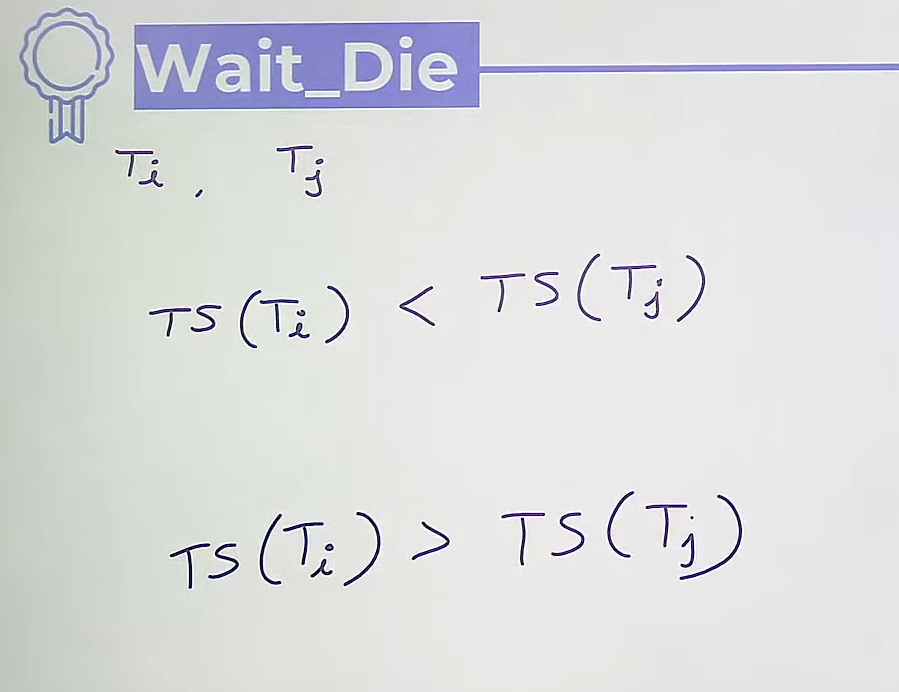 Wait_Die
Ti, Tj
TS(Ti) < TS(Tj)
TS(Ti) > TS(Tj)